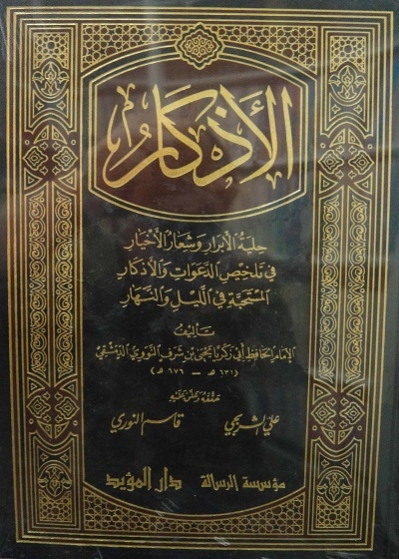 الأذكار
حلية الأبرار وشعار الأخيار
في تلخيص الدعوات والأذكار
المستحبة في الليل والنهار
تأليف
الإمام الحافظ أبي زكريا يحيى بن شرف النووي الدمشقي
(٦٣١ هـ - ٦٧٦ هـ)
حققه وعلق عليه
علي الشربجي قاسم النوري
مؤسسة الرسالة دار المؤيد